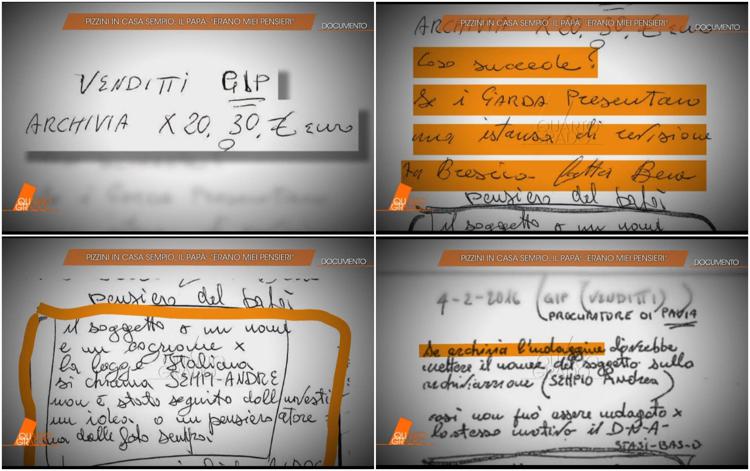 PIZZINI IN CASA SEMPIO, IL PAPÀ: "ERANO MIEI PENSIERI"
DOCUMENTO
VENDITTI GIP
ARCHIVIA X 20. 30. € euro
?
QU
GR
PIZZINI IN CASA SEMPIO, IL PAPÀ: "ERANO MIEI PENSIERI"
DOCUMENTO
ARCHIVIA X 20. 30. € euro
Cosa succede?
Se i GARDA Presentano
una istanza di revisione
a Brescia fatta Bene
pensiero del
il soggetto o un nome
QU
GR
PIZZINI IN CASA SEMPIO, IL PAPÀ: "ERANO MIEI PENSIERI"
DOCUMENTO
pensiero del
il soggetto o un nome
e un x
la Italiana
si chiama SEMPI-ANDRE
non è stato seguito dall
un idea o un pensiero
dalle foto sembra
QU
GR
PIZZINI IN CASA SEMPIO, IL PAPÀ: "ERANO MIEI PENSIERI"
DOCUMENTO
4-2-2016 (GIP (VENDITTI)
(PROCURATORE DI PAVIA
se archivia l'indaggine dovrebbe
mettere il nome del soggetto sulla
(SEMPIO Andrea)
così non può essere indagato x
lo stesso motivo il D-N-A-
STASI-BAS-O
QU
GR